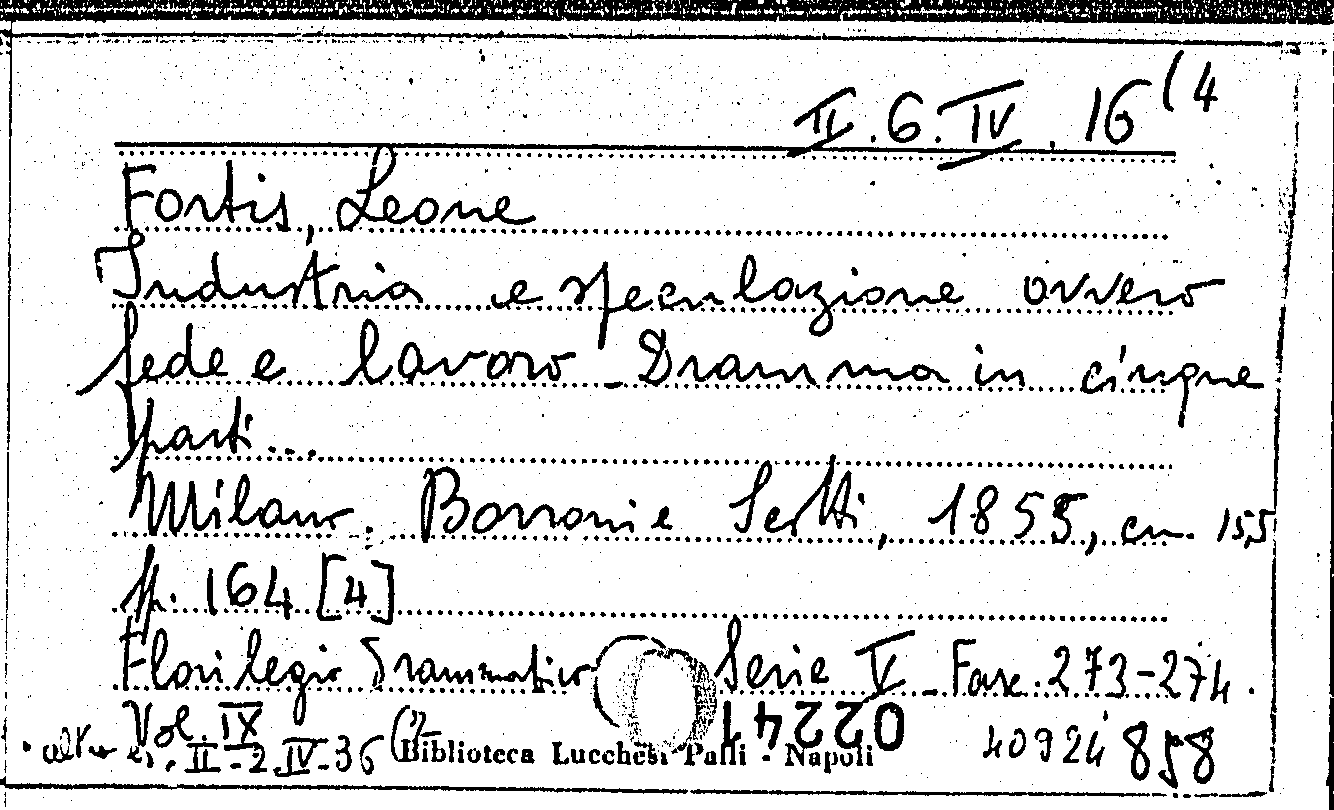 II.6.IV.16(4
Fortis, Leone
Industria e speculazione ovvero
fede e lavoro - Dramma in cinque
parti...
Milano. Borroni e Scotti, 1855, cm. 15,5
pp. 164 [4]
Florilegio drammatico Serie V - Fasc. 273-274.
Vol. IX
02241
altro es. II-2.IV-36(2
Biblioteca Lucchesi Palli - Napoli
40924 858